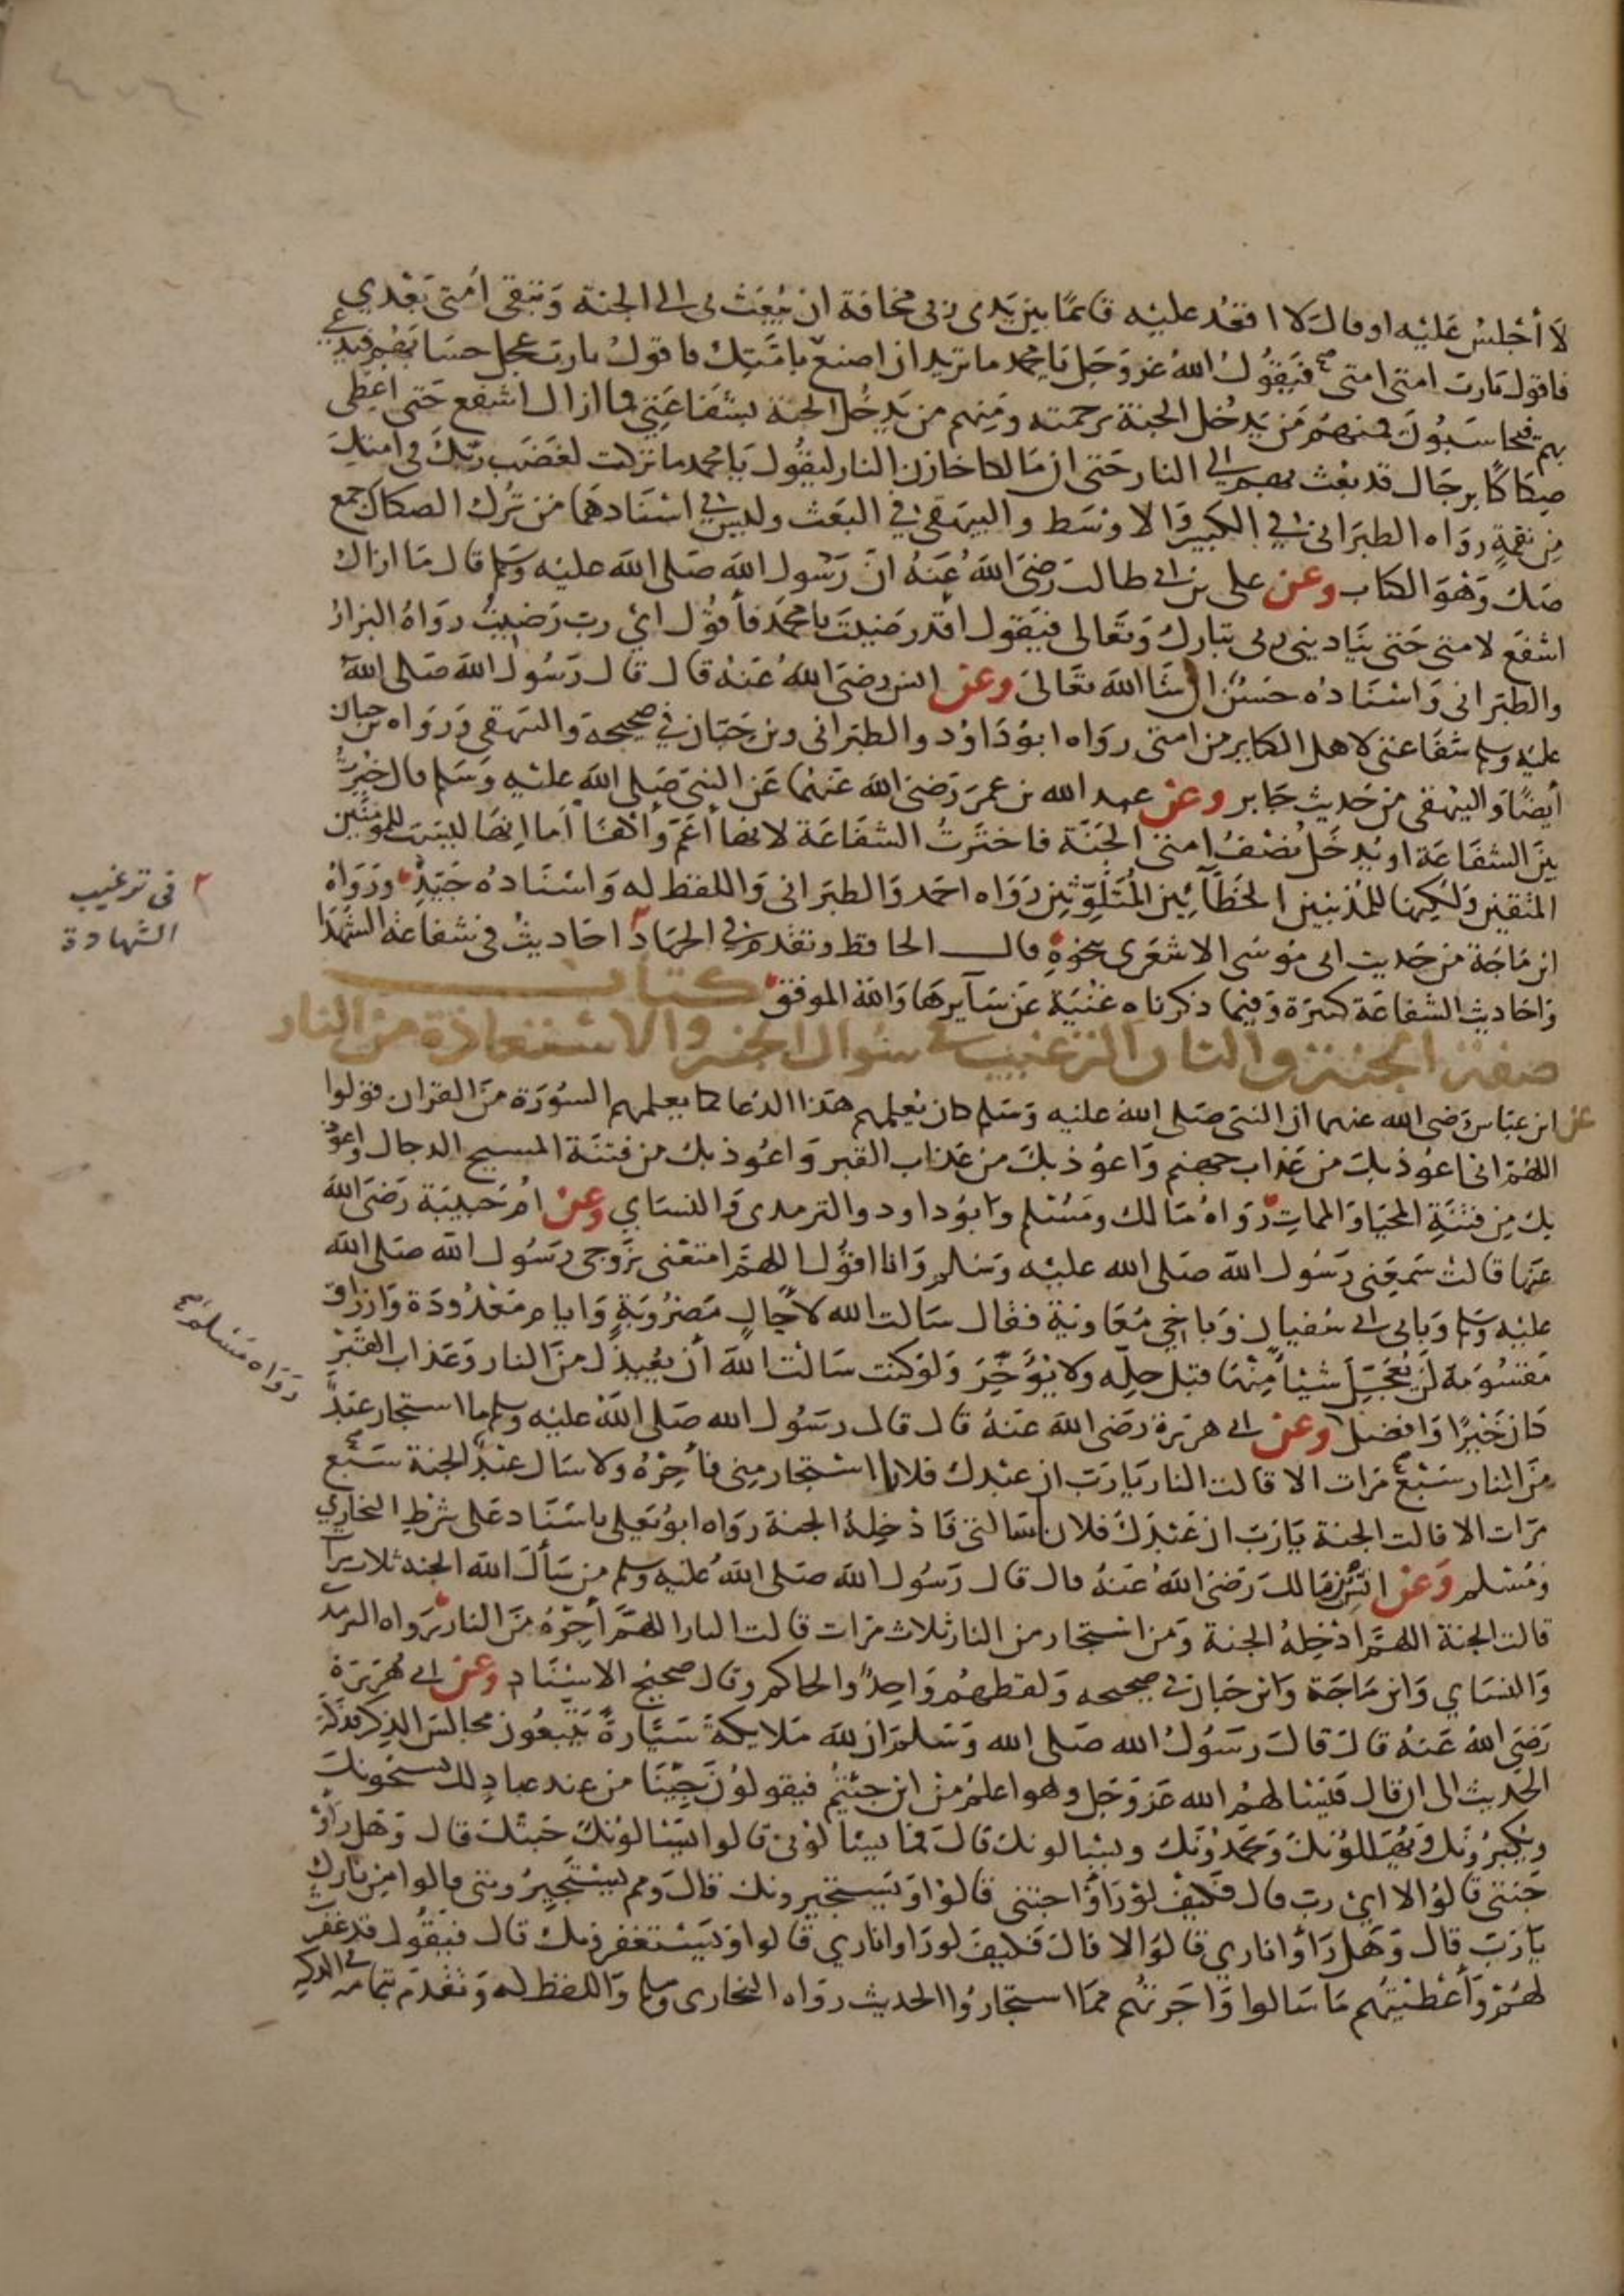 لا أجلس عليه او قال لا اقعد عليه قائمًا بين يدى ربى مخافة ان يُبعث بى الى الجنة وتبقى أمتى بعْدي
فاقول يارب امتى امتى فيقول الله عز وجل يا محمد ما تريد ان اصنع بامتك فاقول يارب عجل حسابهم فيدعى
بهم فيحاسبُون فمنهم من يدخل الجنة برحمته ومنهم من يدخل الجنة بشفاعتي فما ازال اشفع حتى اعطى
صكاكًا برجال قد بعث بهم الى النار حتى ان مالكا خازن النار ليقول يا محمد ما تركت لغضب ربك فى امتك
من نقمةٍ رواه الطبرانى في الكبير والاوسط والبيهقى في البعث وليس في اسنادهما من تُرك الصكاك جمع
صك وهو الكتاب وعن على بن ابى طالب رضي الله عنه ان رسول الله صلى الله عليه وسلم قال ما ازال
اشفع لامتى حتى يناديني ربى تبارك وتعالى فيقول اقد رضيت يا محمد فأقول اي رب رضيت رواه البزار
والطبرانى واسناده حسن ان شا الله تعالى وعن انس رضي الله عنه قال قال رسول الله صلى الله
عليه وسلم شفاعتى لاهل الكباير من امتى رواه ابو داود والطبرانى وبن حبان في صحيحه والبيهقى ورواه بن حبان
أيضًا والبيهقى من حديث جابر وعن عبد الله بن عمر رضي الله عنهما عن النبي صلى الله عليه وسلم قال خيرت
بين الشفاعة او يدخل نصف امتى الجنة فاخترت الشفاعة لانها أعم وأكفا أما انها ليست للمؤمنين
المتقين ولكنها للمذنبين الخطائين المتلوثين رواه احمد والطبرانى واللفظ له واسناده جيد ورواه
ابن ماجة من حديث ابى موسى الاشعرى بنحوه قال الحافظ وتقدم في الجهاد احاديث فى شفاعة الشهدا
واحاديث الشفاعة كثيرة وفيما ذكرناه غنية عن سايرها والله الموفق كتاب
صفة الجنة والنار الترغيب في سؤال الجنة والاستعاذة من النار
عن ابن عباس رضي الله عنهما ان النبي صلى الله عليه وسلم كان يعلمهم هذا الدعا كما يعلمهم السورة من القران قولوا
اللهم انى اعوذ بك من عذاب جهنم واعوذ بك من عذاب القبر واعوذ بك من فتنة المسيح الدجال واعوذ
بك من فتنة المحيا والممات رواه مالك ومسلم وابو داود والترمدى والنساي وعن ام حبيبة رضي الله
عنها قالت سمعنى رسول الله صلى الله عليه وسلم وانا اقول اللهم امتعنى بزوجى رسول الله صلى الله
عليه وسلم وبابى ابى سفيان وباخى معاوية فقال سالت الله لآجال مضروبة وايام معدودة وارزاق
مقسومة لن يعجل شيئا منها قبل حله ولا يؤخر ولو كنت سالت الله أن يعيذك من النار وعذاب القبر
كان خيرًا وافضل وعن ابى هريرة رضى الله عنه قال قال رسول الله صلى الله عليه وسلم ما استجار عبد
من النار سبع مرات الا قالت النار يارب ان عبدك فلانا استجار مني فأجره ولا سال عبد الجنة سبع
مرات الا قالت الجنة يارب ان عبدك فلان سالنى فادخله الجنة رواه ابو يعلى باسناد على شرط البخاري
ومسلم وعن انس بن مالك رضي الله عنه قال قال رسول الله صلى الله عليه وسلم من سأل الله الجنة ثلاث مرات
قالت الجنة اللهم ادخله الجنة ومن استجار من النار ثلاث مرات قالت النار اللهم أجره من النار رواه الترمد
والنساي وابن ماجة وابن حبان فى صحيحه ولفظهم واحد والحاكم وقال صحيح الاسناد وعن ابى هريرة
رضي الله عنه قال قال رسول الله صلى الله وسلم ان لله ملايكة سيارة يتبعون مجالس الذكر فذكر
الحديث الى ان قال فيسالهم الله عز وجل وهو اعلم من اين جئتم فيقولون جينا من عند عباد لك يسبحونك
ويكبرونك ويهللونك ويحمدونك ويسالونك قال فما يسالونى قالوا يسالونك جنتك قال وهل راوْ
جنتى قالوا لا اي رب قال فكيف لو رأوا جنتى قالوا ويستجيرونك قال ومم يستجيرونى قالوا من نارك
يارب قال وهل رأوا نارى قالوا لا قال فكيف لو راوا نارى قالوا ويستغفرونك قال فيقول قد غفرت
لهم وأعطيتهم ما سالوا واجرتهم مما استجاروا الحديث رواه البخارى ومسلم واللفظ له وتقدم بتمامه في الذكر
فى ترغيب
الشهادة
رواه مسلم